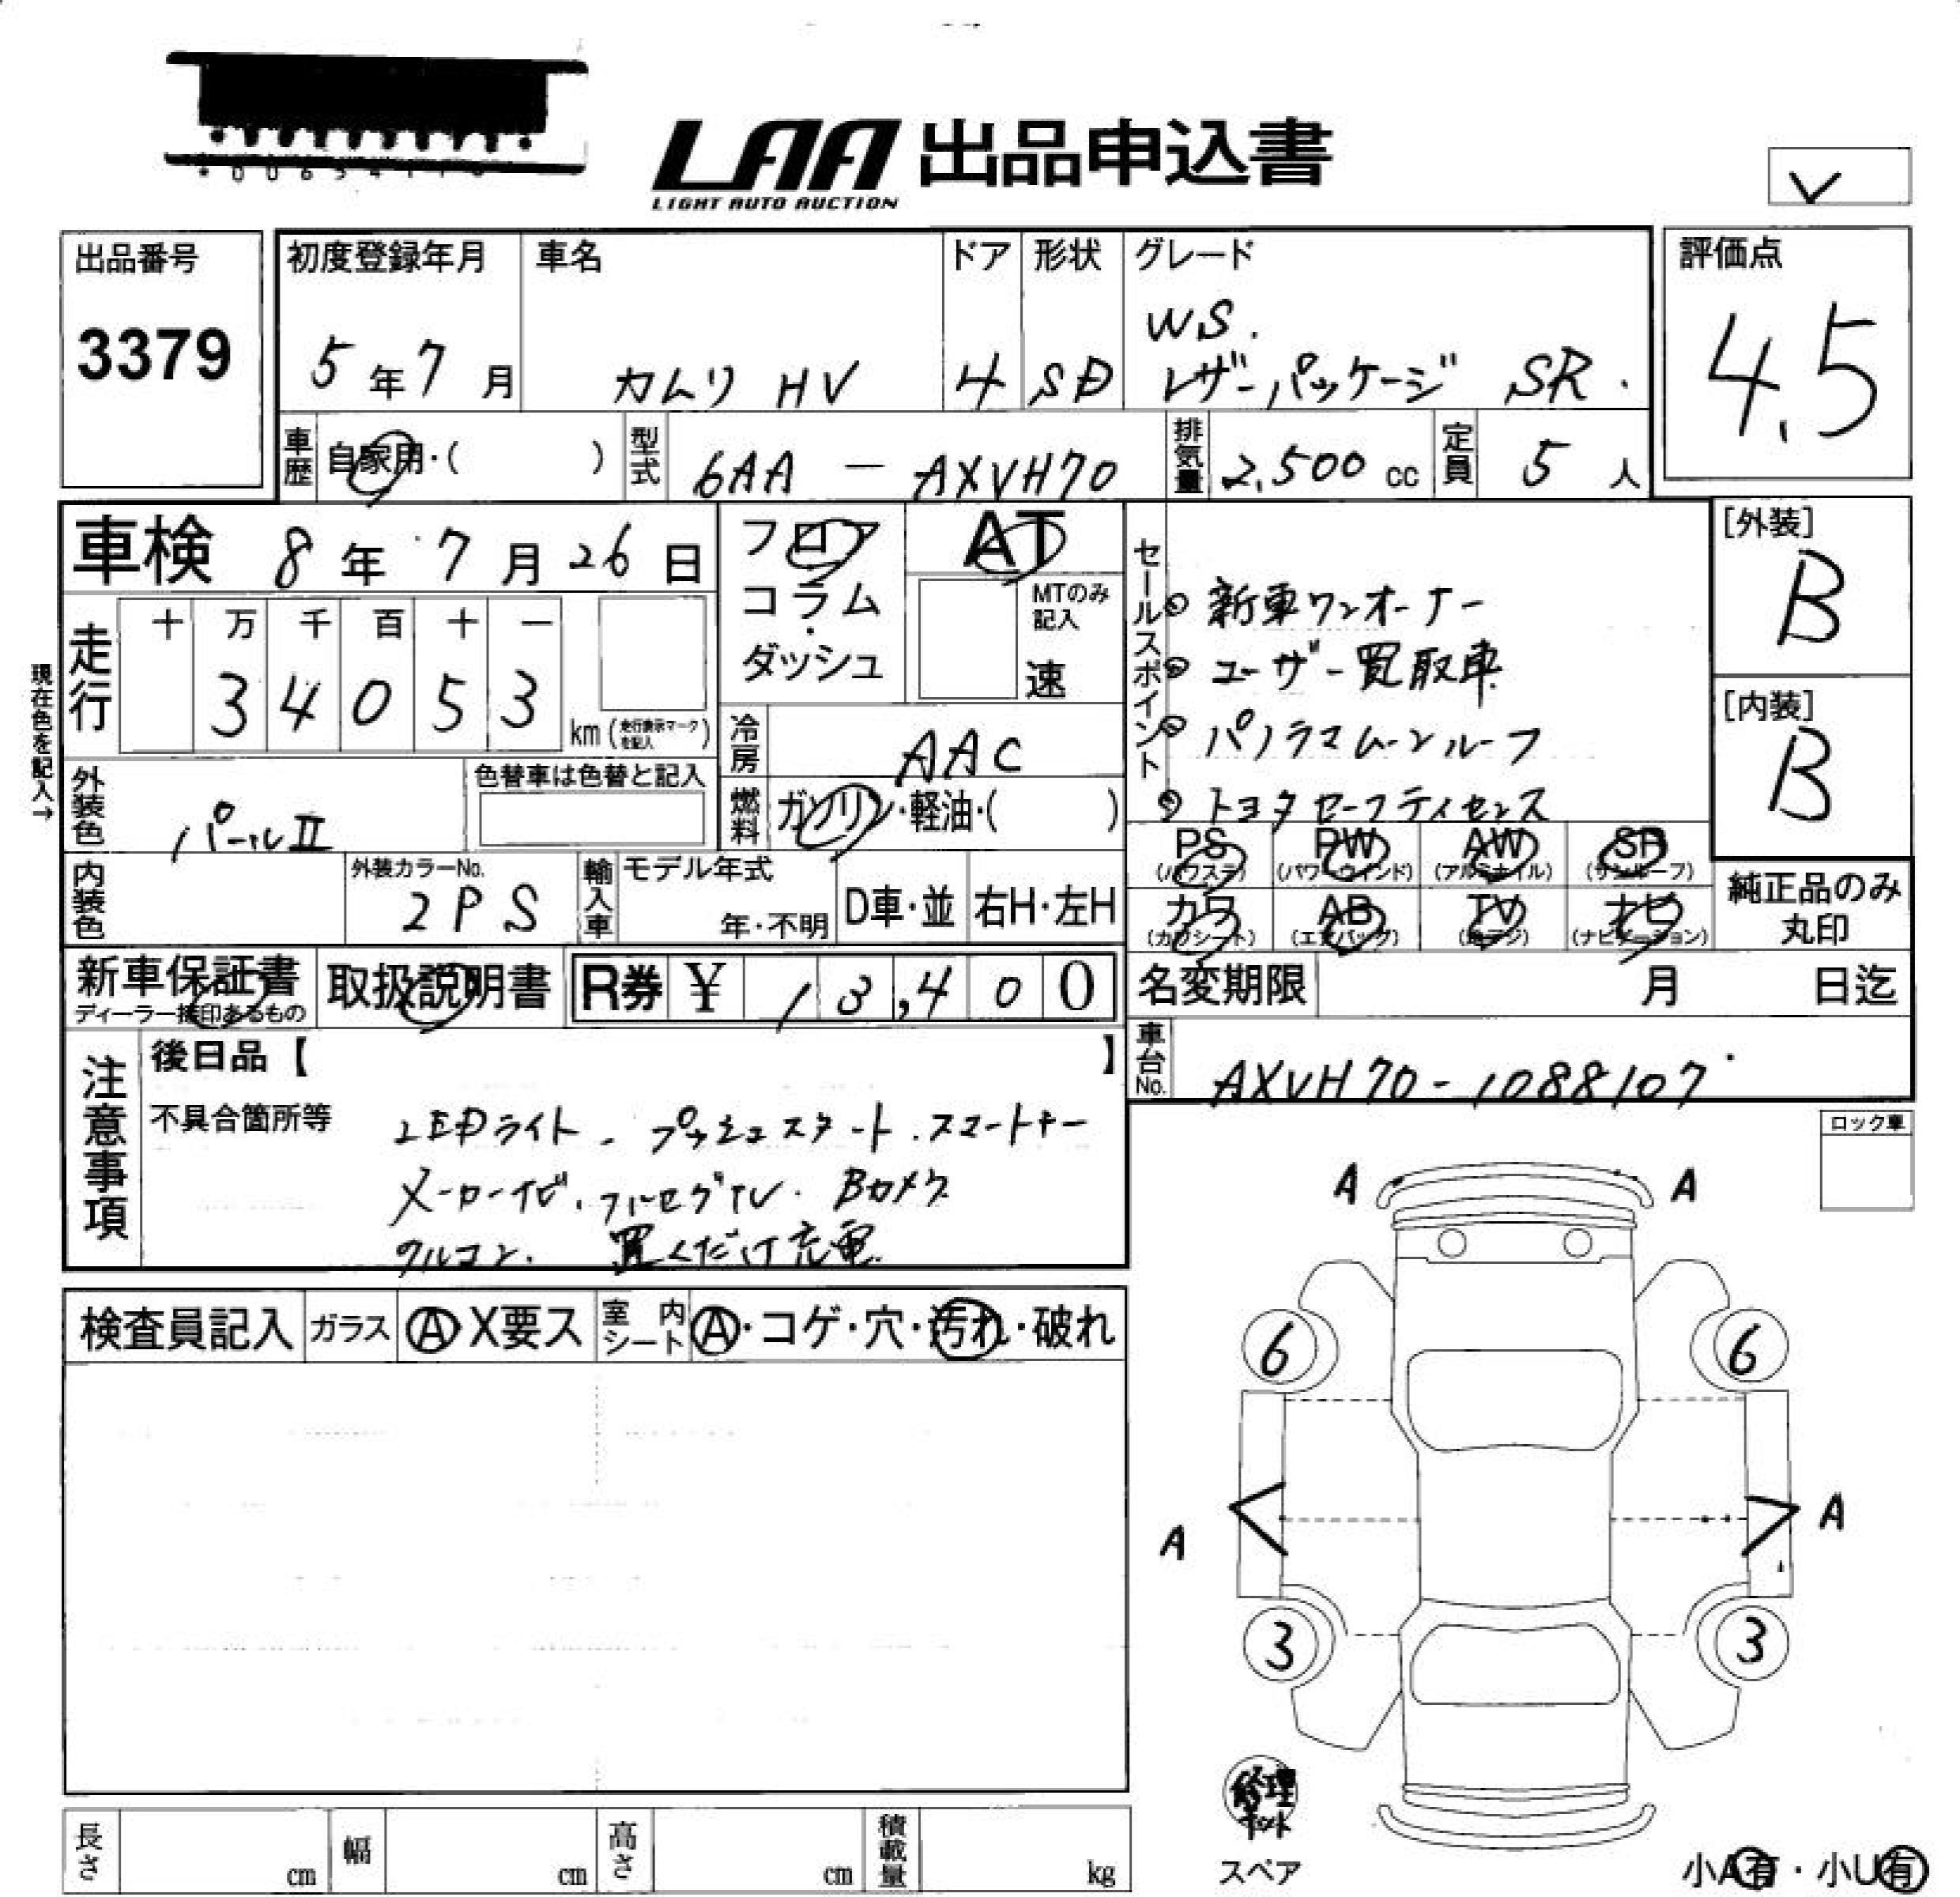 LAA 出品申込書
LIGHT AUTO AUCTION
出品番号
3379
初度登録年月
5年7月
車名
カムリ HV
ドア
4
形状
SD
グレード
WS.
レザーパッケージ SR.
評価点
4.5
車歴
自家用・( )
型式
6AA - AXVH70
排気量
2,500 cc
定員
5人
車検 8年7月26日
フロア
コラム・
ダッシュ
AT
MTのみ
記入
速
セールスポイント
◎ 新車ワンオーナー
◎ ユーザー買取車
◎ パノラマムーンルーフ
◎ トヨタセーフティセンス
[外装]
B
[内装]
B
現在色を記入→
走行
十 万 千 百 十 一
3 4 0 5 3
km (走行表示マークを記入)
冷房
AAC
外装色
パールⅡ
色替車は色替と記入
燃料
ガソリン・軽油・( )
PS (パワステ)
PW (パワーウインド)
AW (アルミホイル)
SR (サンルーフ)
カワ (カワシート)
AB (エアバッグ)
TV (地デジ)
ナビ (ナビゲーション)
純正品のみ
丸印
内装色
外装カラーNo.
2PS
輸入車
モデル年式
年・不明
D車・並
右H・左H
新車保証書
ディーラー捺印あるもの
取扱説明書
R券 ¥ 13,400
名変期限 月 日迄
車台No.
AXVH70-1088107
注意事項
後日品【 】
不具合箇所等
LEDライト.プッシュスタート.スマートキー
メーカーナビ.フルセグTV.Bカメラ
クルコン. 置くだけ充電
ロック車
検査員記入
ガラス
A・X要ス
室内シート
A・コゲ・穴・汚れ・破れ
A A
6 6
A A
3 3
修理
キット
スペア
小A有・小U有
長さ cm
幅 cm
高さ cm
積載量 kg